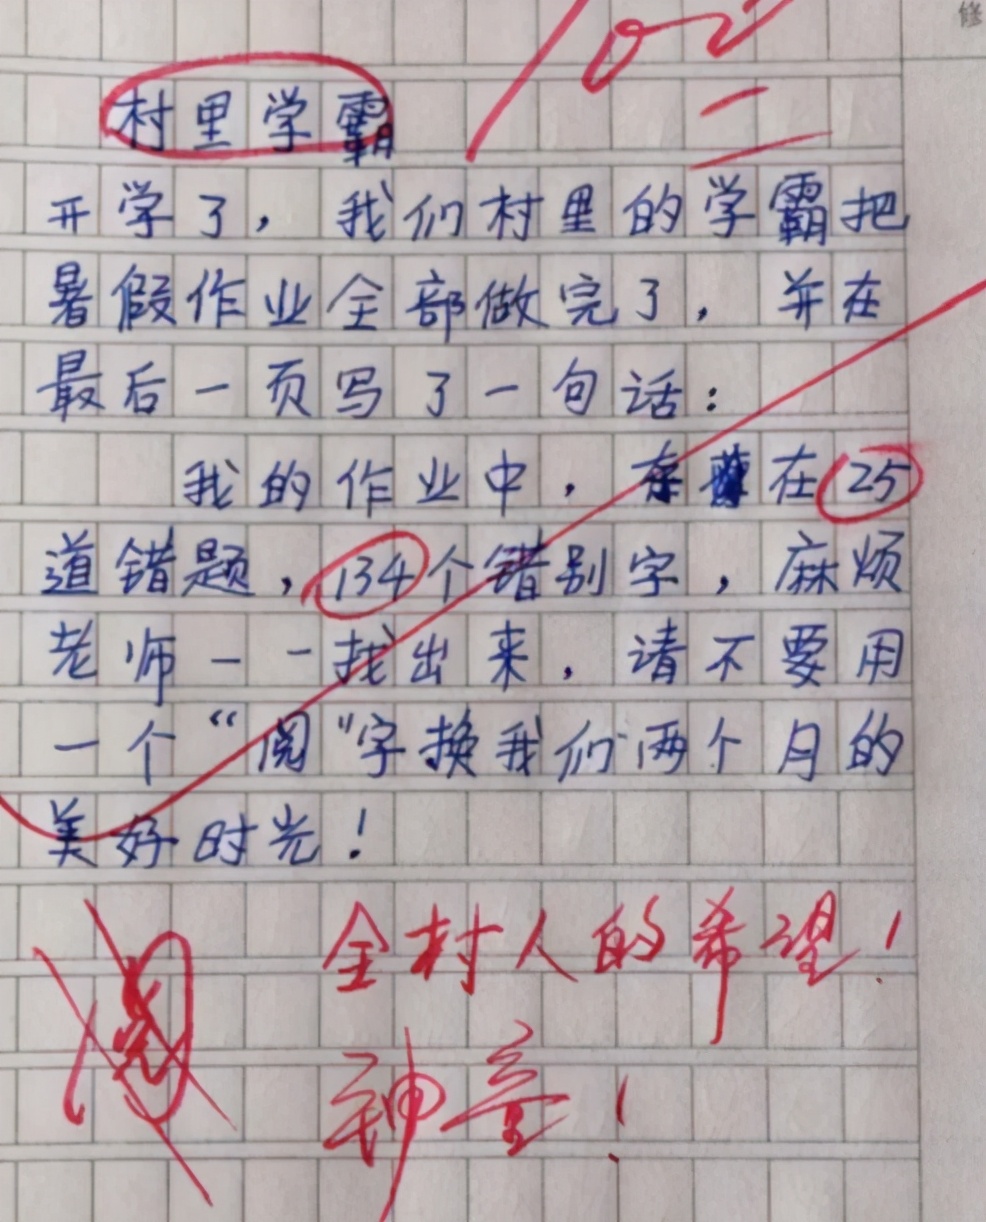 修
102
村里学霸
开学了，我们村里的学霸把
暑假作业全部做完了，并在
最后一页写了一句话：
我的作业中，存在25
道错题，134个错别字，麻烦
老师一一找出来，请不要用
一个“阅”字换我们两个月的
美好时光！
阅
全村人的希望！
神童！